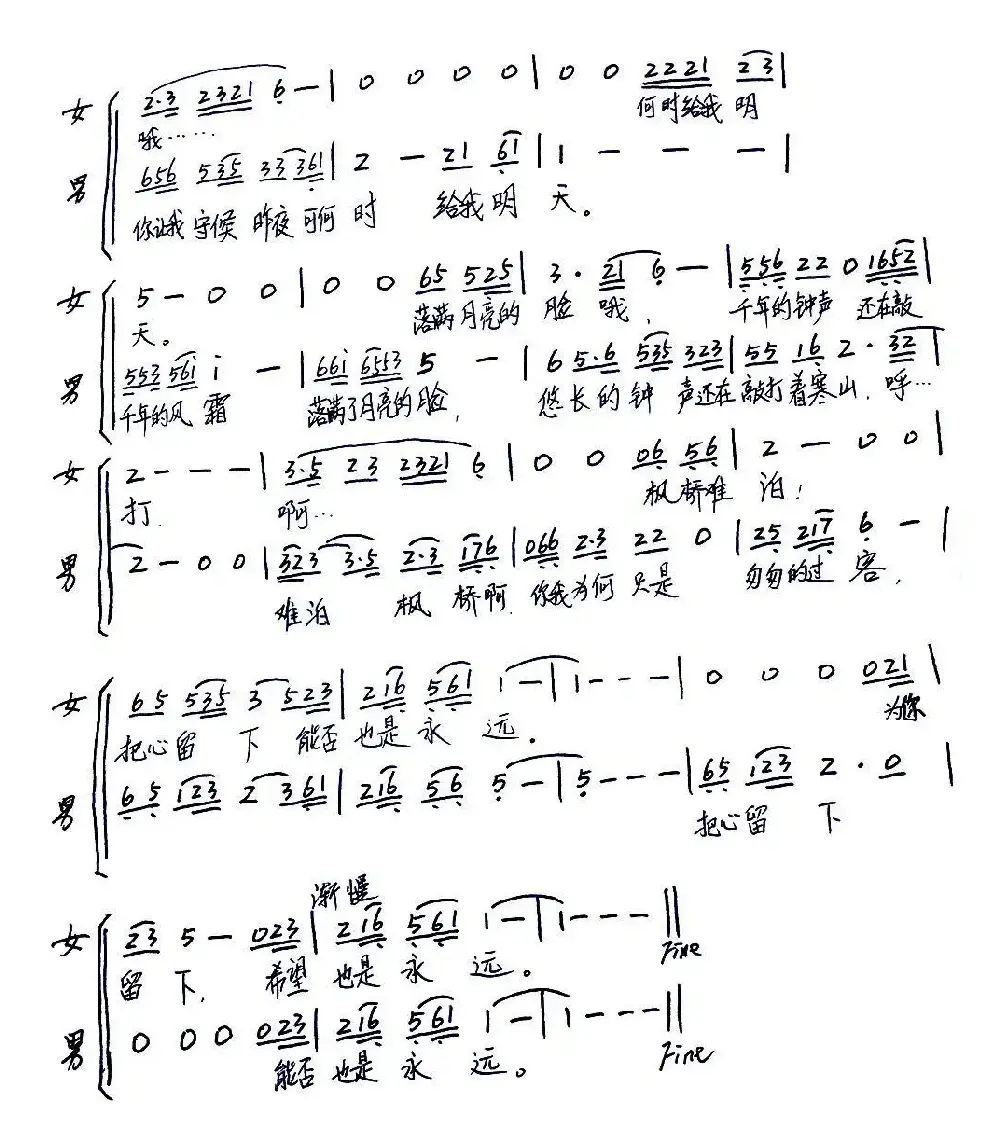 女 2·3 2321 6 — | 0 0 0 0 | 0 0 2221 23 |
哦…… 何时给我 明
男 656 535 33361 | 2 — 21 61 | 1 — — — |
你让我 守候 昨夜 可何 时 给我 明 天。
女 5 — 0 0 | 0 0 65 525 | 3 · 21 6 — | 556 22 0 1652 |
天。 落满 月亮的 脸 哦, 千年的 钟声 还在敲
男 553 561 i — | 661 6553 5 — | 6 5·6 535 323 | 55 16 2 · 32 |
千年的风 霜 落满了月亮的脸, 悠长的钟 声还在敲打着寒山. 呼…
女 2 - - - | 3·5 23 2321 6 | 0 0 06 56 | 2 — 0 0 |
打. 啊… 枫桥难 泊!
男 2 — 0 0 | 323 3·5 2·3 176 | 066 2·3 22 0 | 25 217 6 — |
难泊 枫 桥啊. 你我为何 只是 匆匆的过 客,
女 65 535 3 523 | 216 561 1 — | 1 - - - | 0 0 0 021 |
把心留 下 能否 也是 永 远。 为你
男 65 123 2 361 | 216 56 5 — | 5 - - - | 65 123 2 · 0 |
把心留 下
渐慢
女 23 5 — 023 | 216 561 1 — | 1 - - - ||
留 下, 希望 也是 永 远。 Fine
男 0 0 0 023 | 216 561 1 — | 1 - - - ||
能否 也是 永 远。 Fine